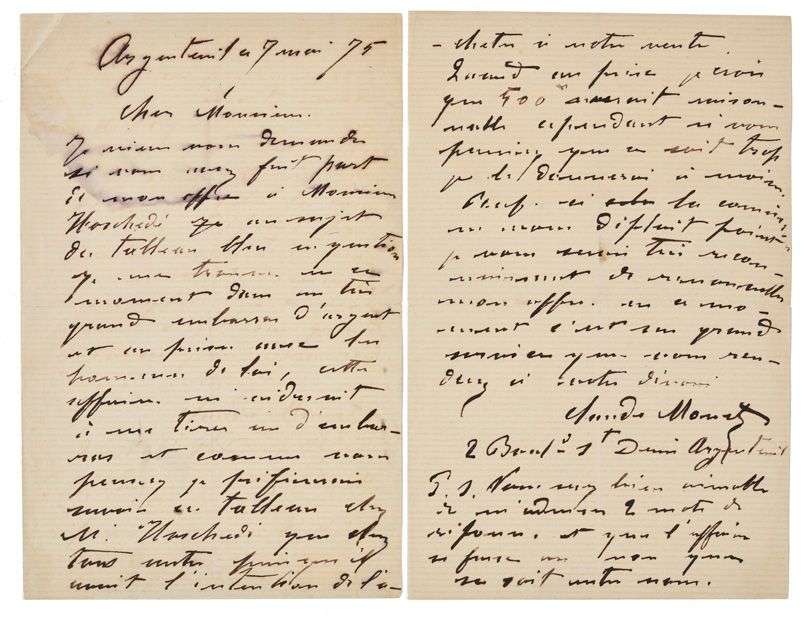 Argenteuil ce 7 mai 75
Cher Monsieur.
Je viens vous demander
si vous avez fait part
de mon offre à Monsieur
Hoschedé au sujet
du tableau bleu en question
je me trouve en ce
moment dans un très
grand embarras d'argent
et en prise avec les
hommes de loi, cette
affaire m'aiderait
à me tirer d'embar-
ras et comme vous
pensez je préfèrerais
savoir ce tableau chez
M. Hoschedé que chez
tout autre puisqu'il
avait l'intention de l'a-
-cheter à notre vente
Quand au prix je crois
que 500 serait raison-
nable cependant si vous
pensiez que ce soit trop
je le donnerai à moins.
Bref. si la commission
ne vous déplait point
je vous serais très recon-
naissant de renouveller
mon offre. en ce mo-
-ment c'est un grand
service que vous ren-
drez à votre dévoué
Claude Monet
2 Boulᵈ Sᵗ Denis Argenteuil
P.S. Vous seriez bien aimable
de m'adresser 2 mots de
réponse. et que l'affaire
se fasse ou non que
ce soit entre nous.